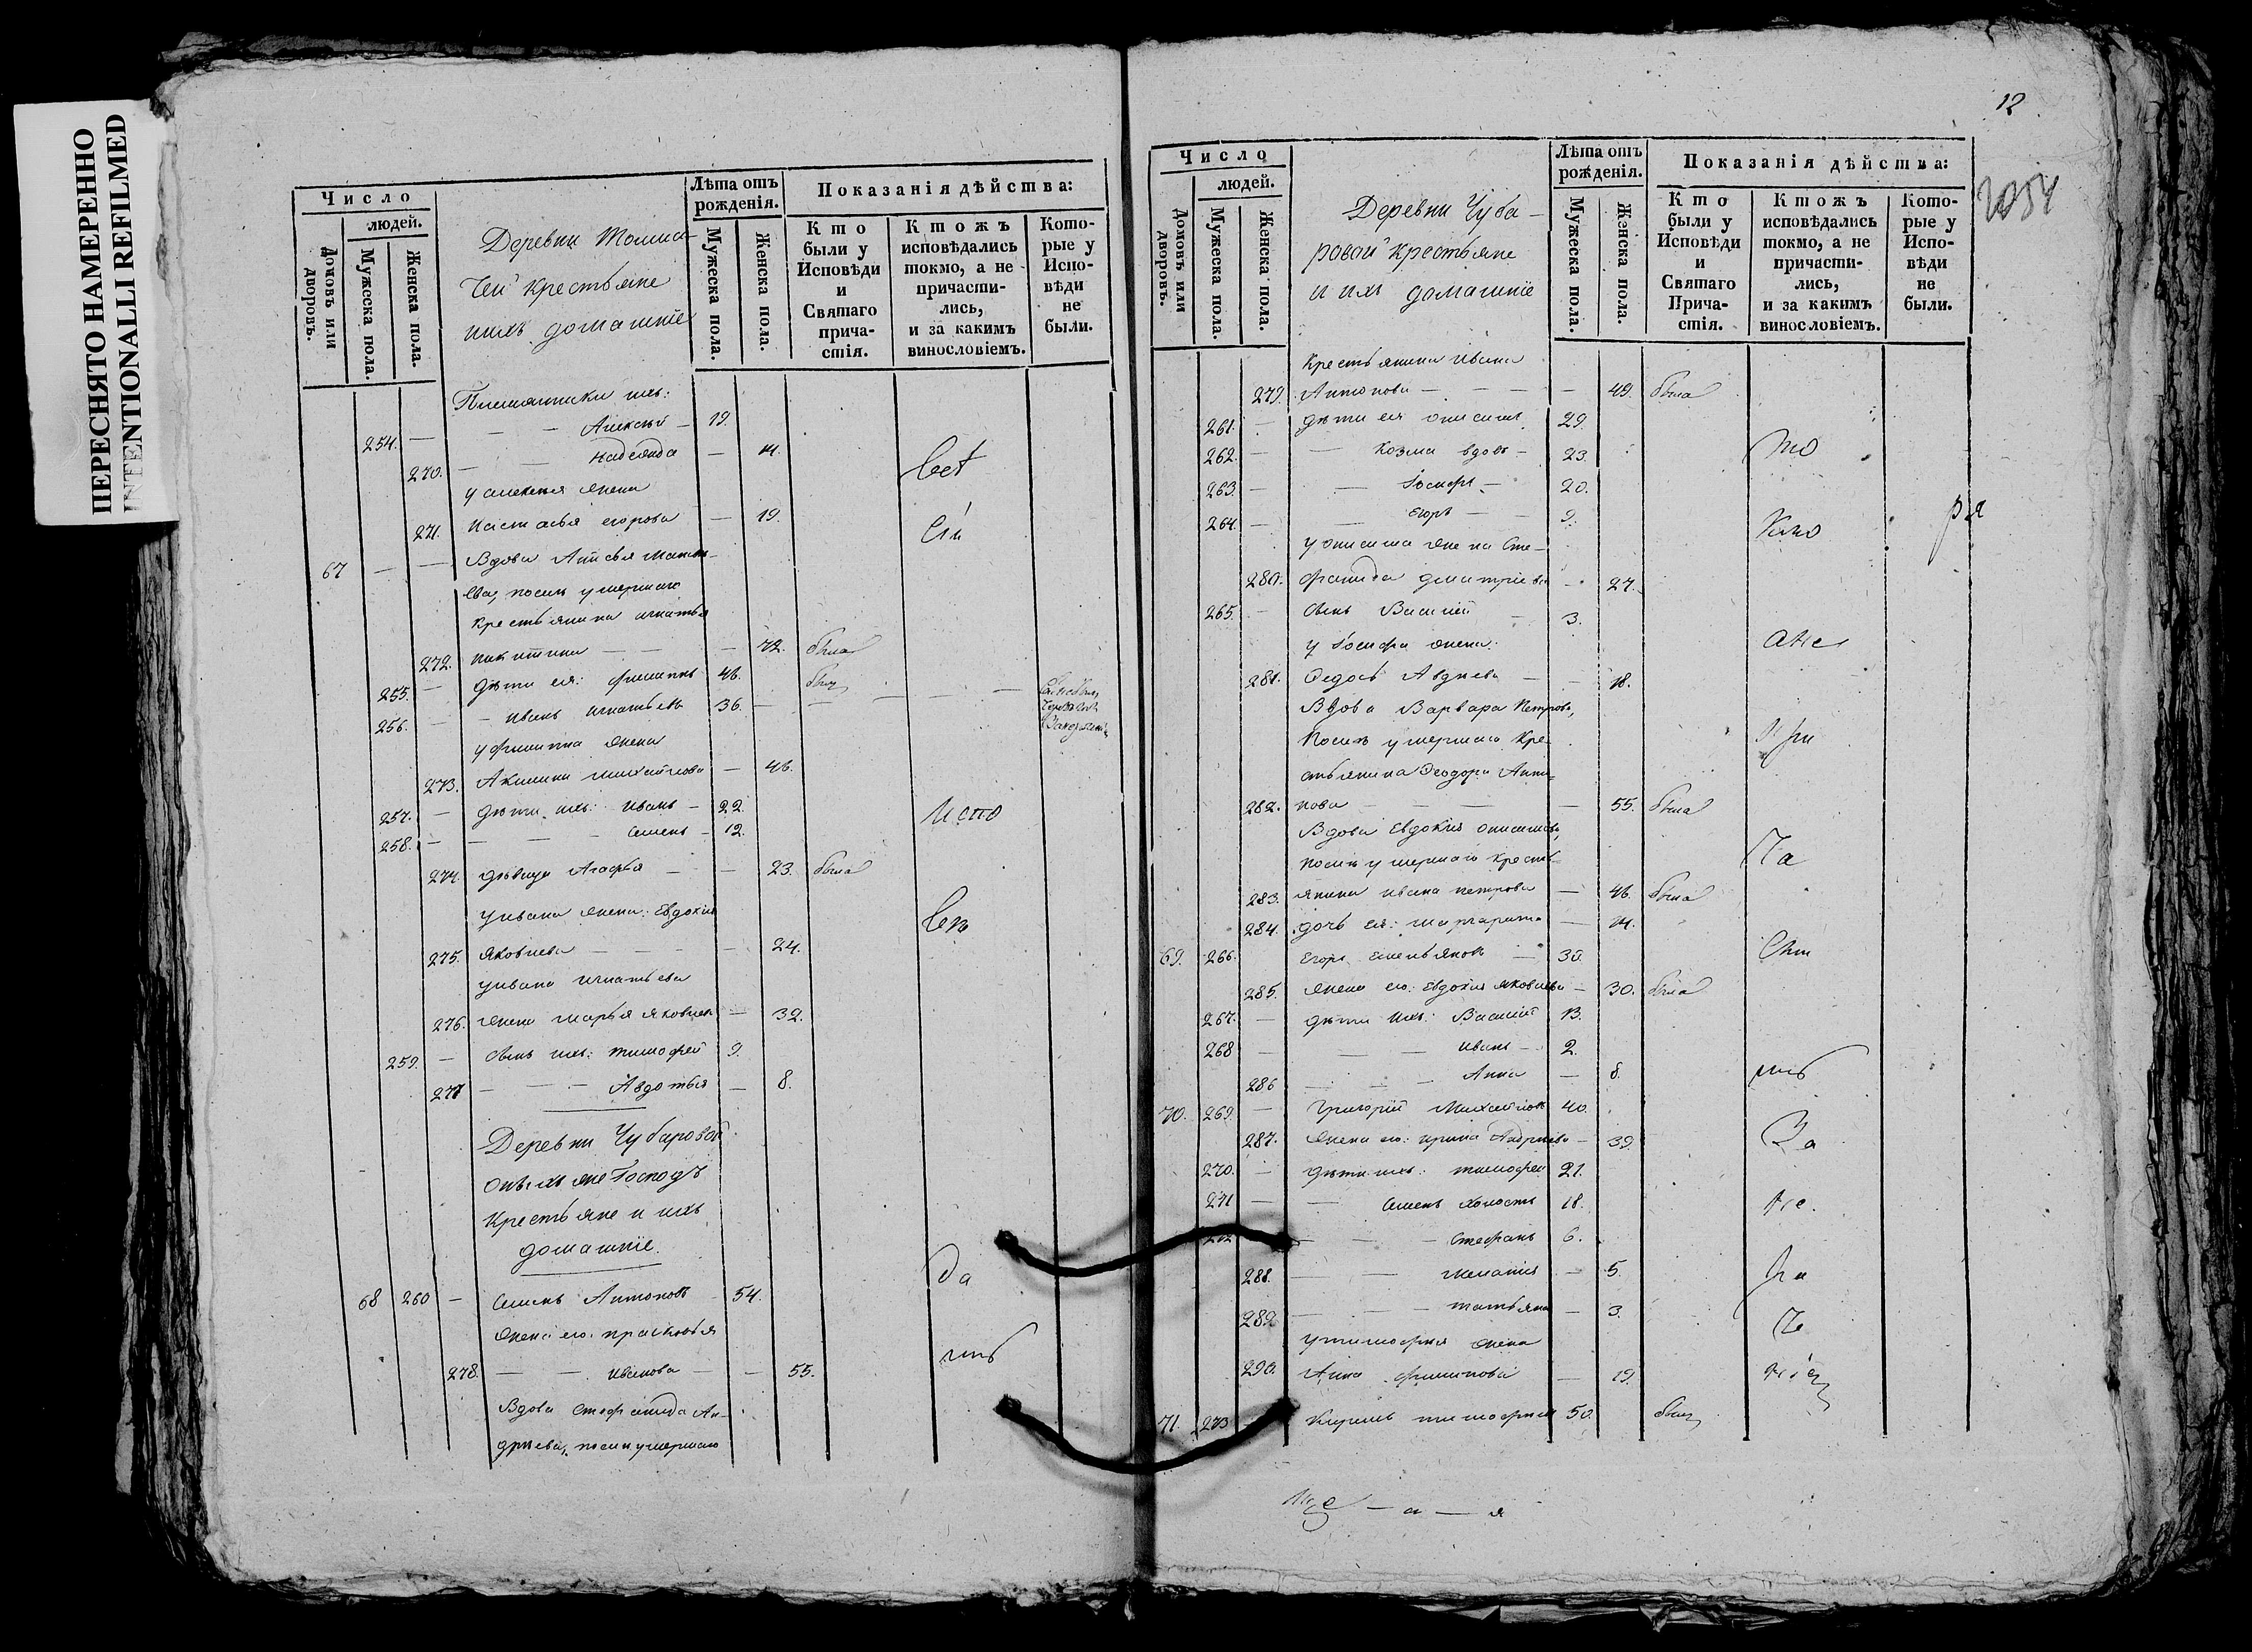 ПЕРЕСНЯТО НАМЕРЕННО
INTENTIONALLI REFILMED
Число
людей.
Домовъ или дворовъ.
Мужеска пола.
Женска пола.
Деревни
чей крестьяне
ихъ домашніе
Лѣта отъ рожденія.
Мужеска пола.
Женска пола.
Показанія дѣйства:
Кто были у Исповѣди и Святаго причастія.
Ктожъ исповѣдались токмо, а не причастились, и за какимъ винословіемъ.
Которые у Исповѣди не были.
Племянники ихъ:
254. — — — Алексѣй — 19.
270. — — Надежда — 14.
у Алексѣя жена
271. Настасья Егорова — 19.
67 — — Вдова
ва, послѣ умершаго
крестьянина Игнатья
272. Никитина — — — 72. была
255. — Дѣти ея: Филиппъ 46. былъ
256. — — Иванъ Игнатьевъ 36. — — — —
у Филиппа жена
273. Акилина Михайлова — 46.
257. — Дѣти ихъ: Иванъ — 22.
258. — — — Семенъ — 12.
274. Дѣвица Агафья — — 23. была
у Ивана жена: Евдокія
275. Яковлева — — — 24.
у Ивана Игнатьева
276. жена Марья Яковлева — 32.
259. — Сынъ ихъ: Тимофей 9.
277 — — — Авдотья — 8.
Деревни Чубаровой
же Господъ
Крестьяне и ихъ
домашніе.
68 260 — Семенъ Антоновъ 54.
Жена его: Прасковья
278. — — Иванова — — 55.
Вдова Стефанида Ан-
дреева, послѣ умершаго
12
2054
Число
людей.
Домовъ или дворовъ.
Мужеска пола.
Женска пола.
Деревни Чуба-
ровой крестьяне
и ихъ домашніе
Лѣта отъ рожденія.
Мужеска пола.
Женска пола.
Показанія дѣйства:
Кто были у Исповѣди и Святаго Причастія.
Ктожъ исповѣдались токмо, а не причастились, и за какимъ винословіемъ.
Которые у Исповѣди не были.
крестьянина Ивана
279. Антонова — — — — 49. была
261. — Дѣти ея Онисимъ 29.
262. — — Козма вдовъ — 23.
263. — — Іосифъ — 20.
264. — — Егоръ — — 9.
у Онисима жена Сте-
280. фанида Дмитріева — 27.
265. — Сынъ Василій — 3.
у Іосифа жена:
281. Ѳедосья Авдѣева — — 18.
Вдова Варвара Петрова,
послѣ умершаго кре-
стьянина Ѳеодора Анто-
282. нова — — — — 55. была
Вдова Евдокія Онисимова,
послѣ умершаго кресть-
283. янина Ивана Петрова — 46. была
284. дочь ея: Маргарита — 14.
69. 266. Егоръ Емельяновъ — 30.
285. Жена его: Евдокія Яковлева — 30. была
267. — Дѣти ихъ: Василій 13.
268 — — — Иванъ — 2.
286 — — — Анна — 8.
70. 269. — Григорій Михайловъ 40.
287. Жена его: Ирина Андреева — 39.
270. — Дѣти ихъ: Тимофей 21.
271 — — Семенъ холостъ 18.
272 — — — Стефанъ 6.
288. — — Меланія — 5.
289. — — — Татьяна — 3.
у Тимофея жена
290. Анна Филиппова — 19.
71. 273 Тимофеевъ 50. былъ